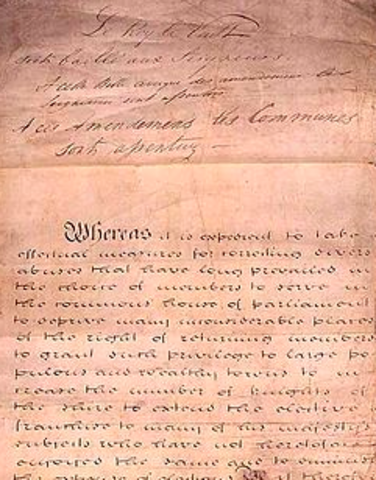 Le Roy le Veult
Soit baillé aux Seigneurs
A ceste Bille avecque des amendemens les
Seigneurs sont assentus
A ces Amendemens les Communes
sont assentuz
Whereas it is expedient to take
effectual measures for correcting divers
abuses that have long prevailed in
the choice of members to serve in
the commons house of parliament
to deprive many inconsiderable places
of the right of returning members
to grant such privilege to large po
pulous and wealthy towns to in
crease the number of knights of
the shire to extend the elective
franchise to many of his majestys
subjects who have not heretofore
enjoyed the same and to diminish
the expense of elections Be it therefo